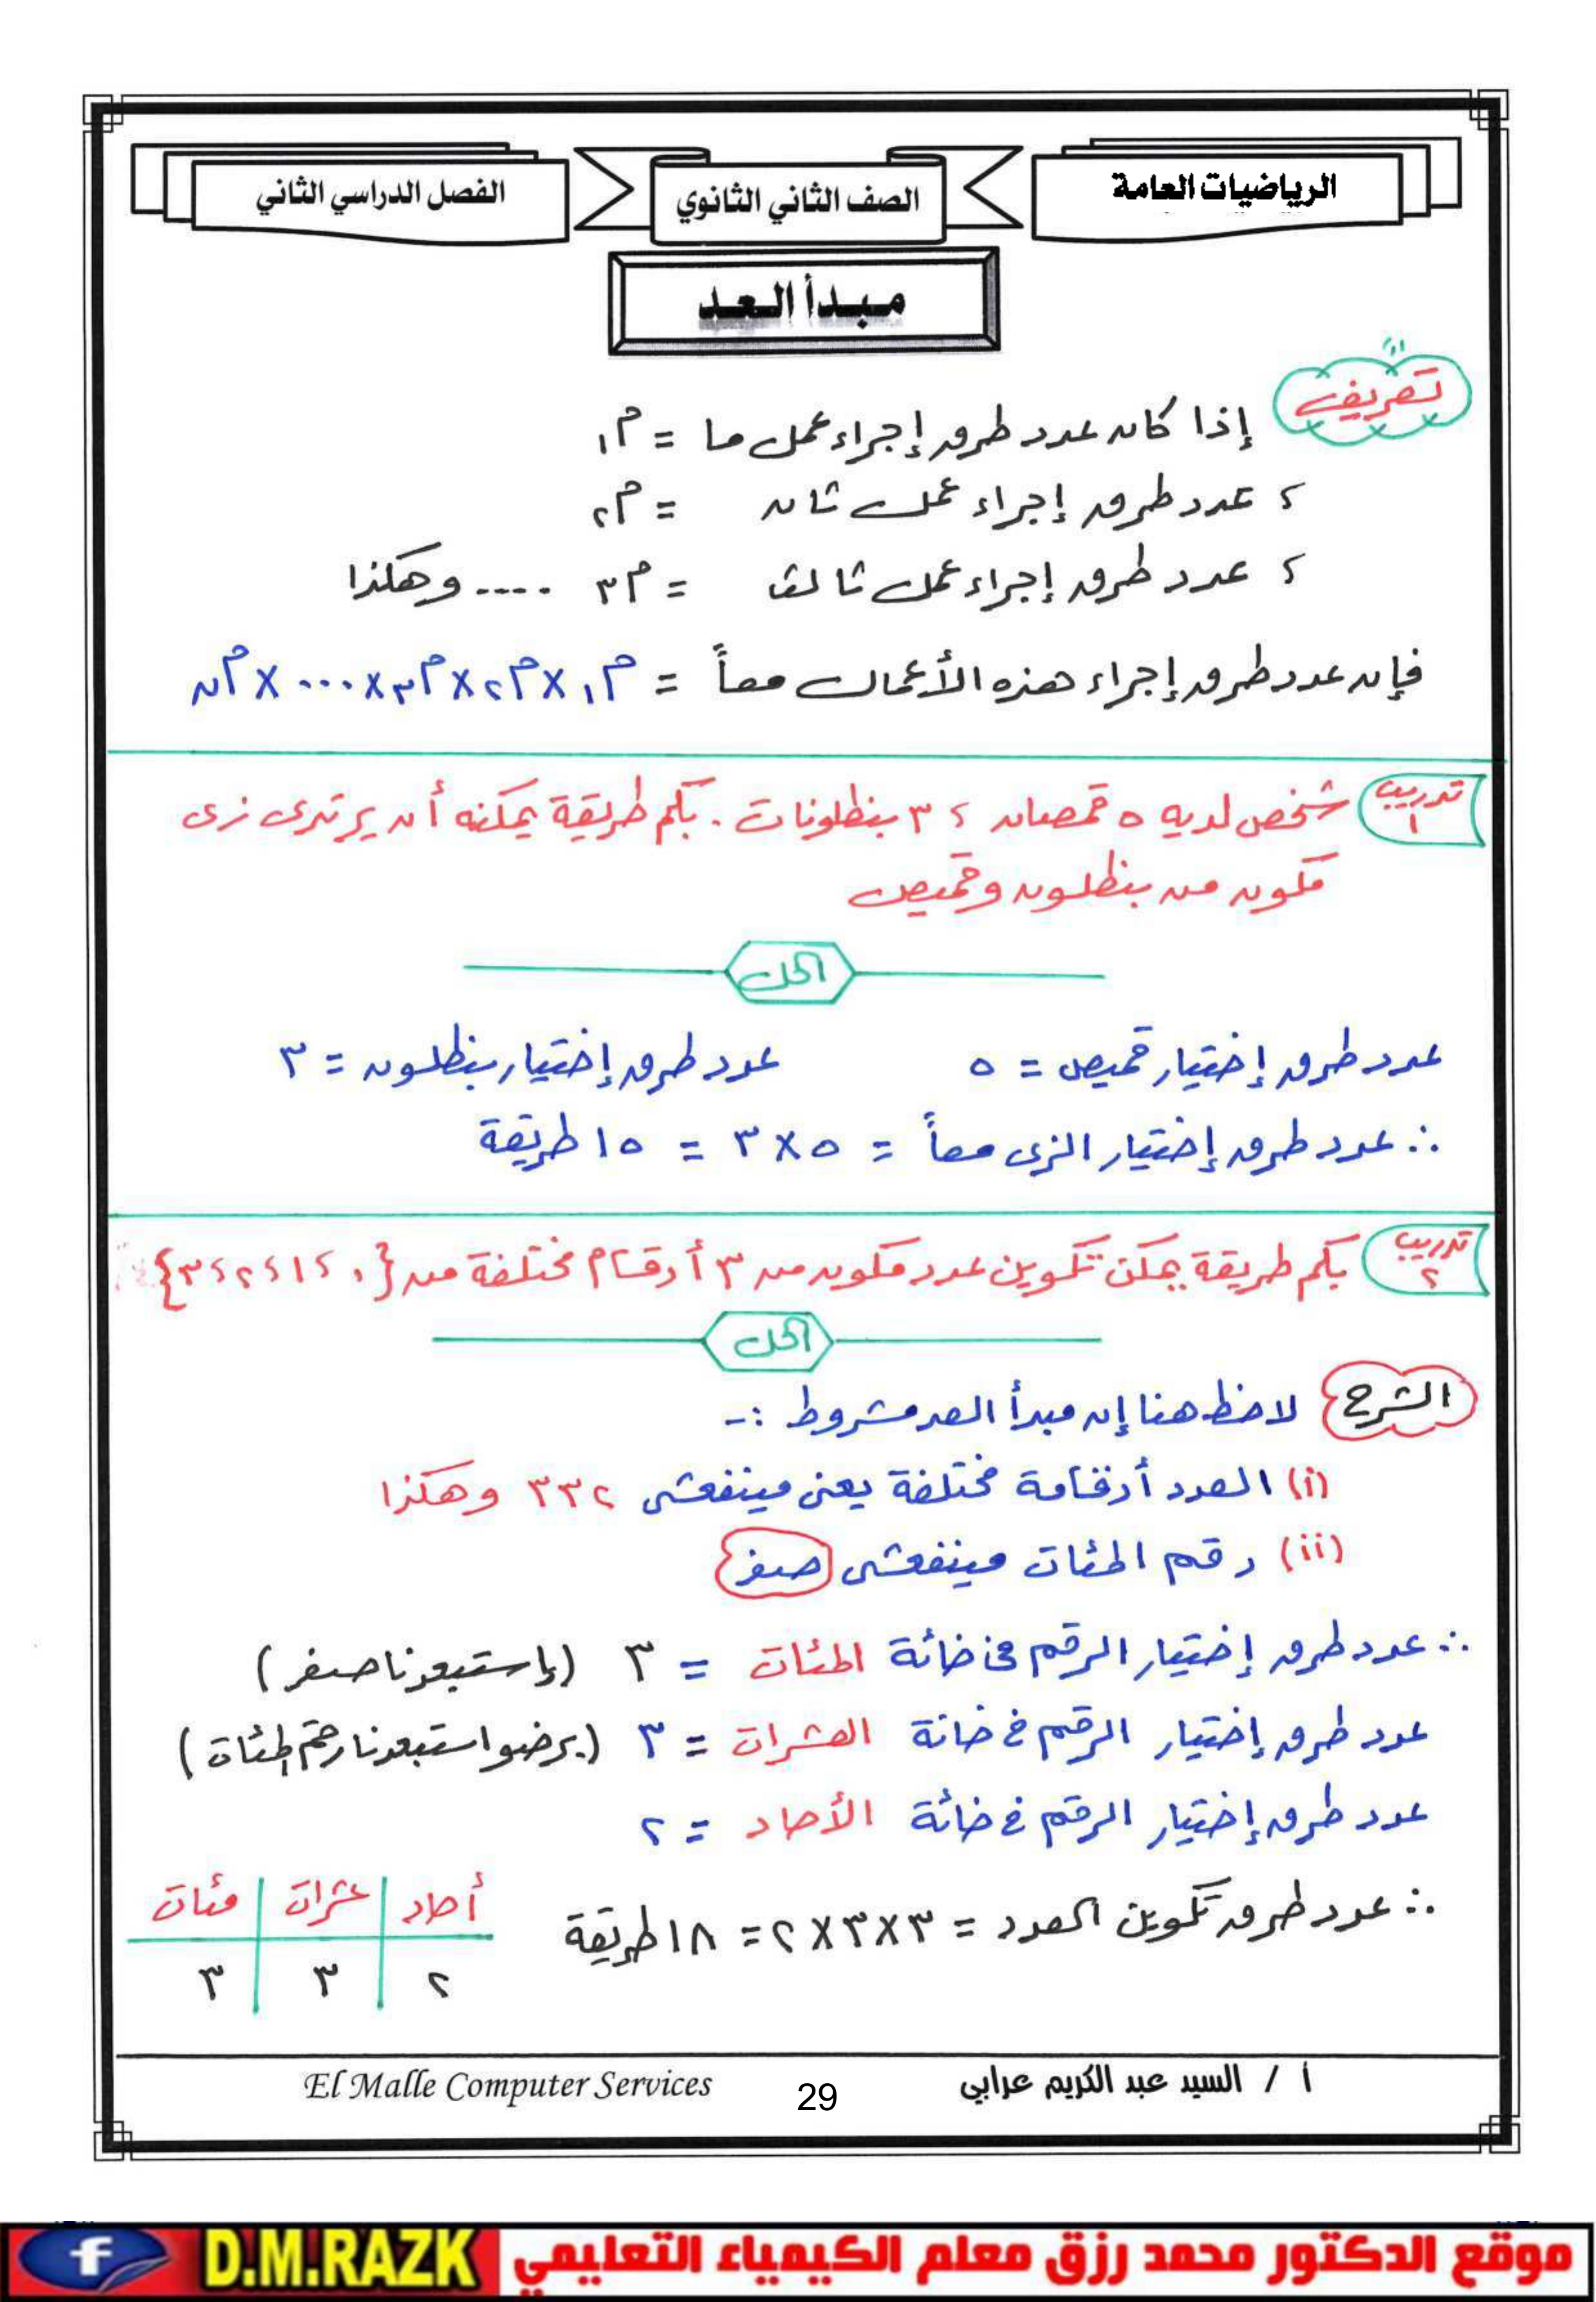 الرياضيات العامة
الصف الثاني الثانوي
الفصل الدراسي الثاني
مبدأ العد
تعريف
إذا كان عدد طرق إجراء عمل ما = م١
، عدد طرق إجراء عمل ثان = م٢
، عدد طرق إجراء عمل ثالث = م٣ .... وهكذا
فإن عدد طرق إجراء هذه الأعمال معاً = م١ × م٢ × م٣ × ... × من
تدريب ١
شخص لديه ٥ قمصان ، ٣ بنطلونات . بكم طريقة يمكنه أن يرتدى زى
مكون من بنطلون وقميص
الحل
عدد طرق إختيار قميص = ٥ عدد طرق إختيار بنطلون = ٣
∴ عدد طرق إختيار الزى معاً = ٥ × ٣ = ١٥ طريقة
تدريب ٢
بكم طريقة يمكن تكوين عدد مكون من ٣ أرقام مختلفة من {٠ ، ١ ، ٢ ، ٣}
الحل
الشرح
لاحظ هنا إن مبدأ العد مشروط :-
(i) العدد أرقامة مختلفة يعنى مينفعش ٣٣٢ وهكذا
(ii) رقم المئات مينفعش صفر
∴ عدد طرق إختيار الرقم فى خانة المئات = ٣ (إستبعدنا صفر)
عدد طرق إختيار الرقم فى خانة العشرات = ٣ (برضو استبعدنا رقم المئات)
عدد طرق إختيار الرقم فى خانة الأحاد = ٢
∴ عدد طرق تكوين العدد = ٣ × ٣ × ٢ = ١٨ طريقة
أحاد عشرات مئات
٢ ٣ ٣
أ / السيد عبد الكريم عرابي
29
El Malle Computer Services
موقع الدكتور محمد رزق معلم الكيمياء التعليمي
D.M.RAZK
f